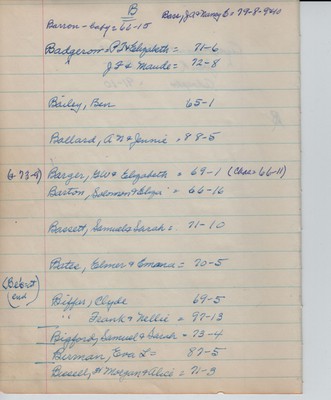 B
Barron - baby = 66-15 Bass, J.A & Nancy E = 79-8-9&10
Badgerow - P.T & Elizabeth = 71-6
J F & Maude = 72-8
Bailey, Ben 65-1
Ballard, A N & Jennie = 88-5
(& 73-9) Barger, GW & Elizabeth = 69-1 (Chas = 66-11)
Barton, Solomon & Eliza = 66-16
Bassett, Samuel & Sarah = 71-10
Bates, Elmer & Emma = 70-5
(Bebout
Biffer, Clyde 69-5
" Frank & Nellie = 97-13
Bigford, Samuel & Sarah = 73-4
Birman, Eva L = 87-5
Bissell, Morgan & Alice = 71-3